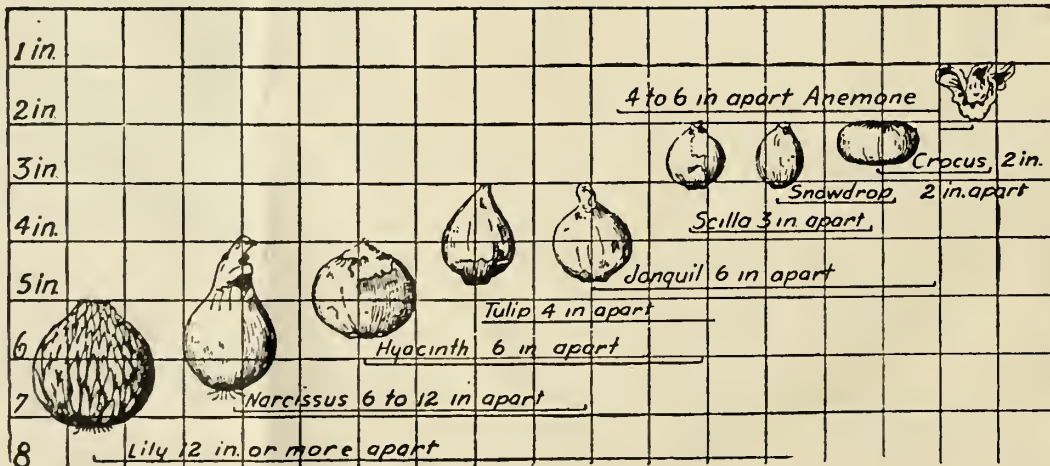 1 in.
2 in.
4 to 6 in apart Anemone
3 in.
Crocus, 2 in.
Snowdrop, 2 in. apart
4 in.
Scilla 3 in apart
5 in
Jonquil 6 in apart
Tulip 4 in apart
6
Hyacinth 6 in apart
7
Narcissus 6 to 12 in apart
8
Lily 12 in. or more apart